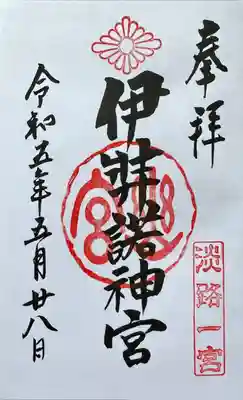 奉拝
淡路一宮
伊弉諾神宮
令和五年五月廿八日